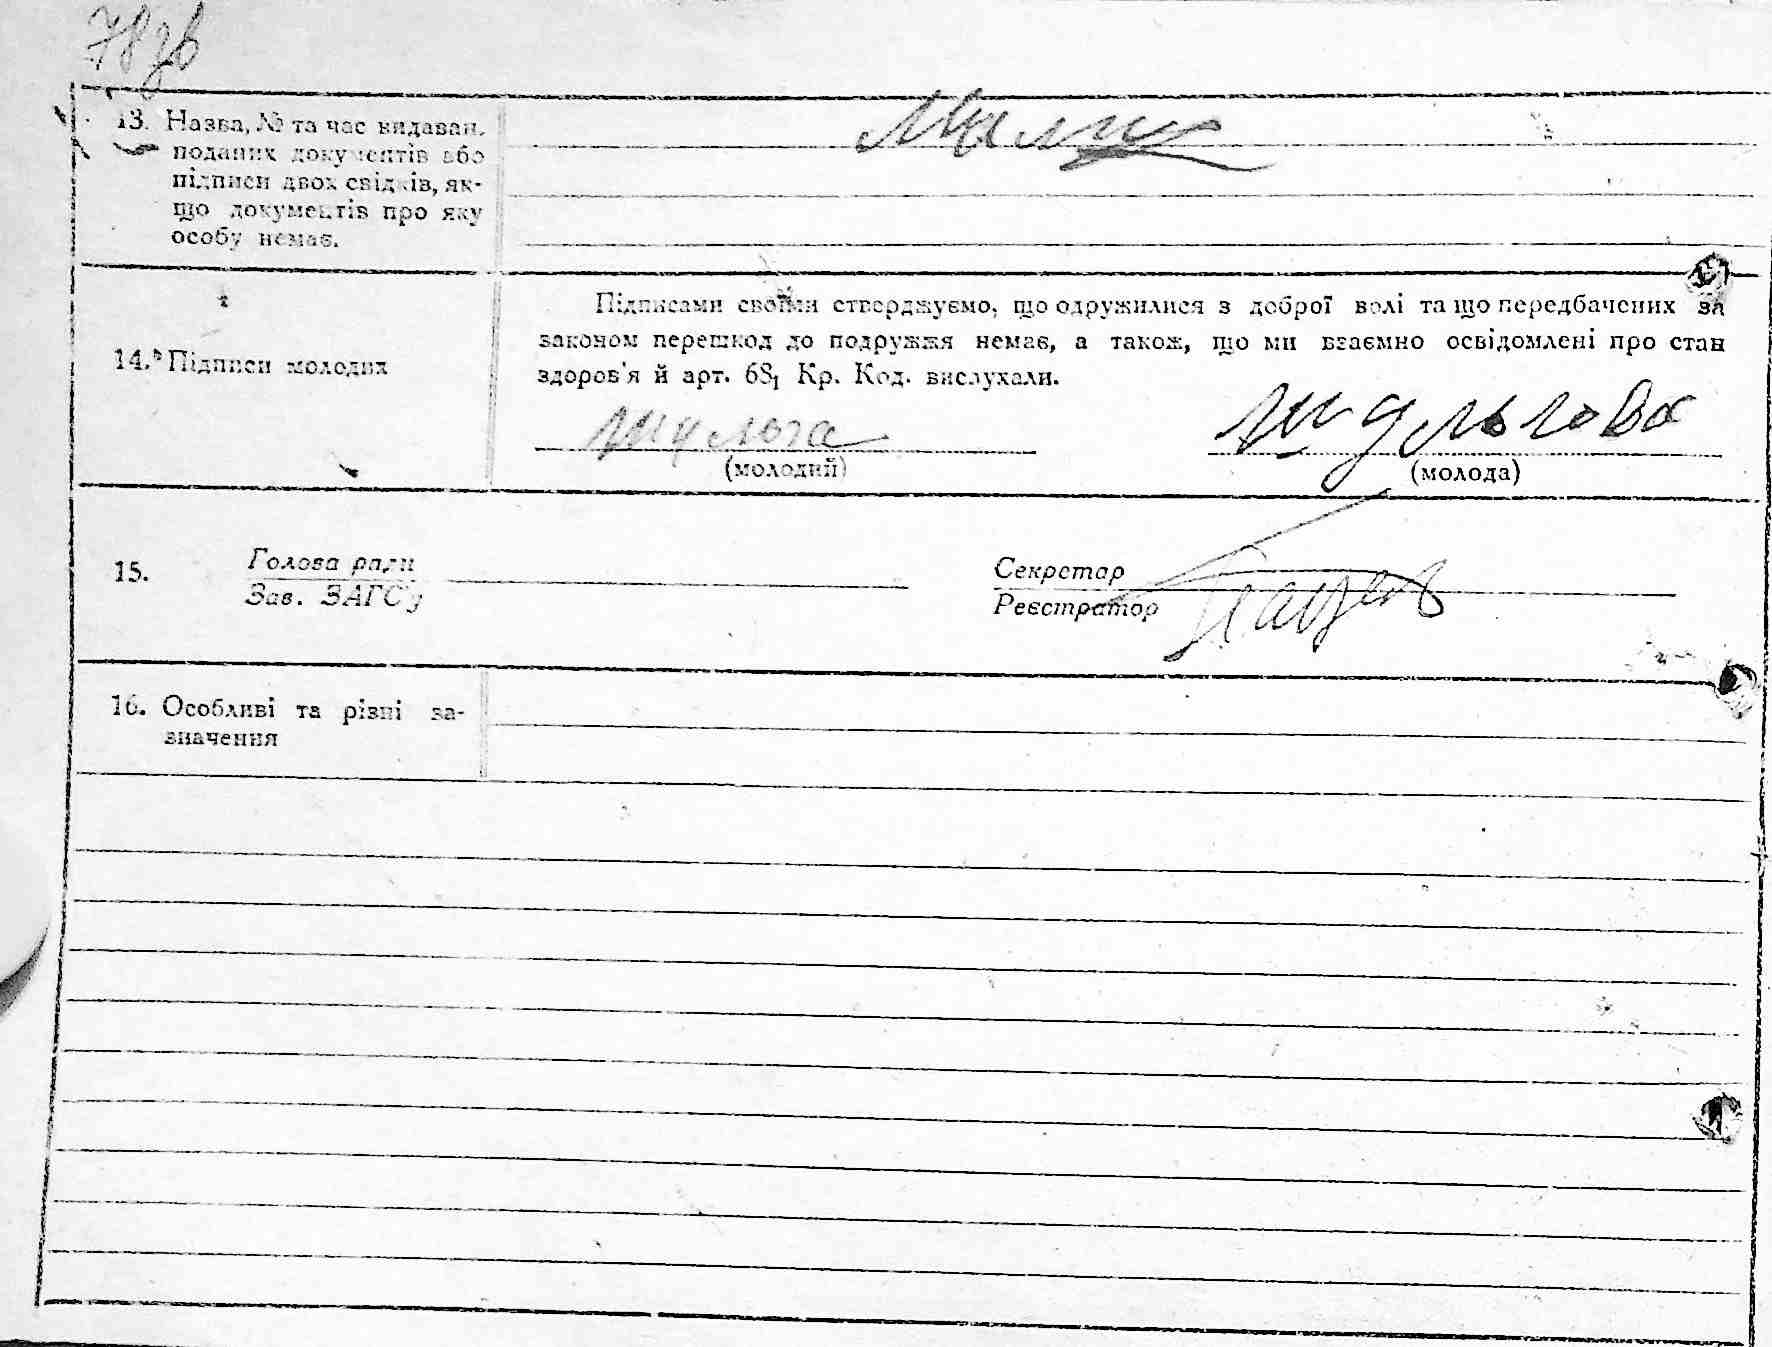 78 зв
13. Назва, № та час видаван.
поданих документів або
підписи двох свідків, як-
що документів про яку
особу немає.
Підписами своїми стверджуємо, що одружилися з доброї волі та що передбачених за
законом перешкод до подружжя немає, а також, що ми взаємно освідомлені про стан
здоров'я й арт. 68₁ Кр. Код. вислухали.
14. Підписи молодих
Шульга
Шульгова
(молодий)
(молода)
15.
Голова ради
Зав. ЗАГС'у
Секретар
Реєстратор
16. Особливі та різні за-
значення